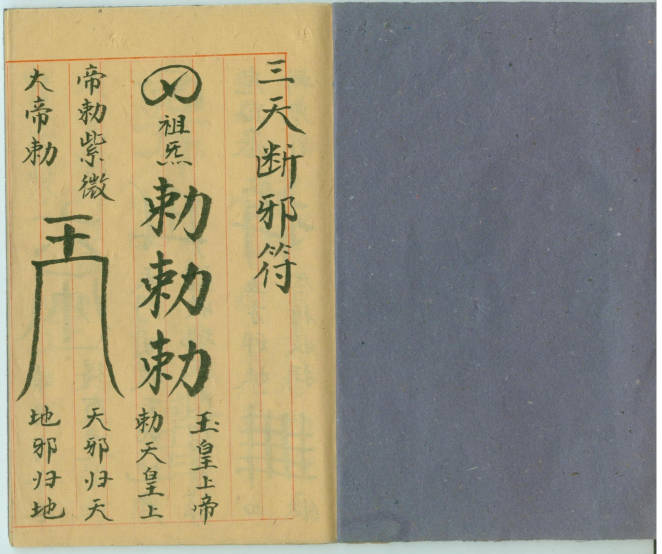 三天断邪符
祖炁
勅勅勅
玉皇上帝
勅天皇上
帝勅紫微
大帝勅
天邪归天
地邪归地